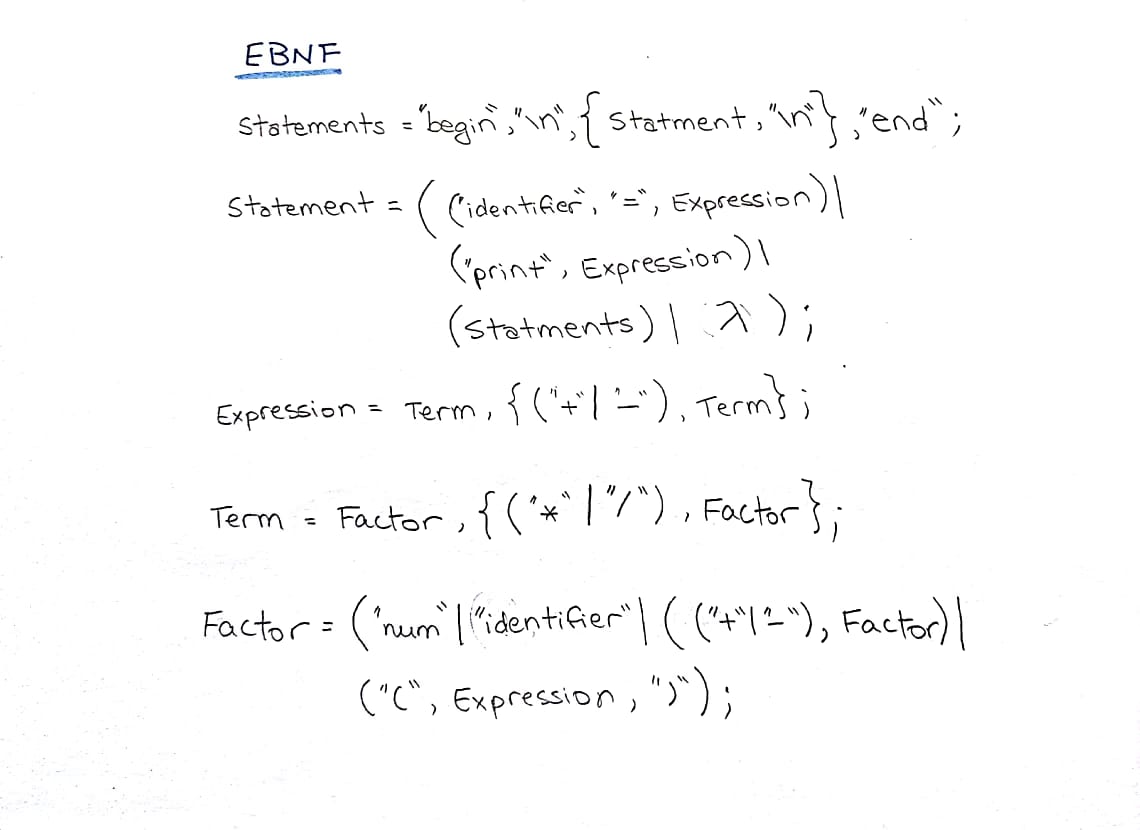 EBNF
Statements = "begin","\n",{ Statment, "\n"} ,"end";
Statement = ( ("identifier", "=", Expression)|
("print", Expression)|
(Statments) | λ );
Expression = Term, {("+"| "-"), Term};
Term = Factor, {("*" | "/"), Factor};
Factor = ("num" | "identifier" | ( ("+"|"-"), Factor)|
("(", Expression, ")");